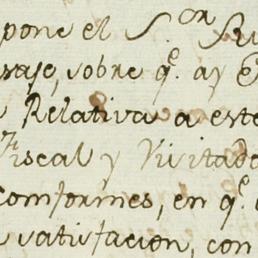 pone el S.or
sobre q.e ay
Relativa a este
Fiscal y Visitado
conformes, en q.e
satisfacion, con